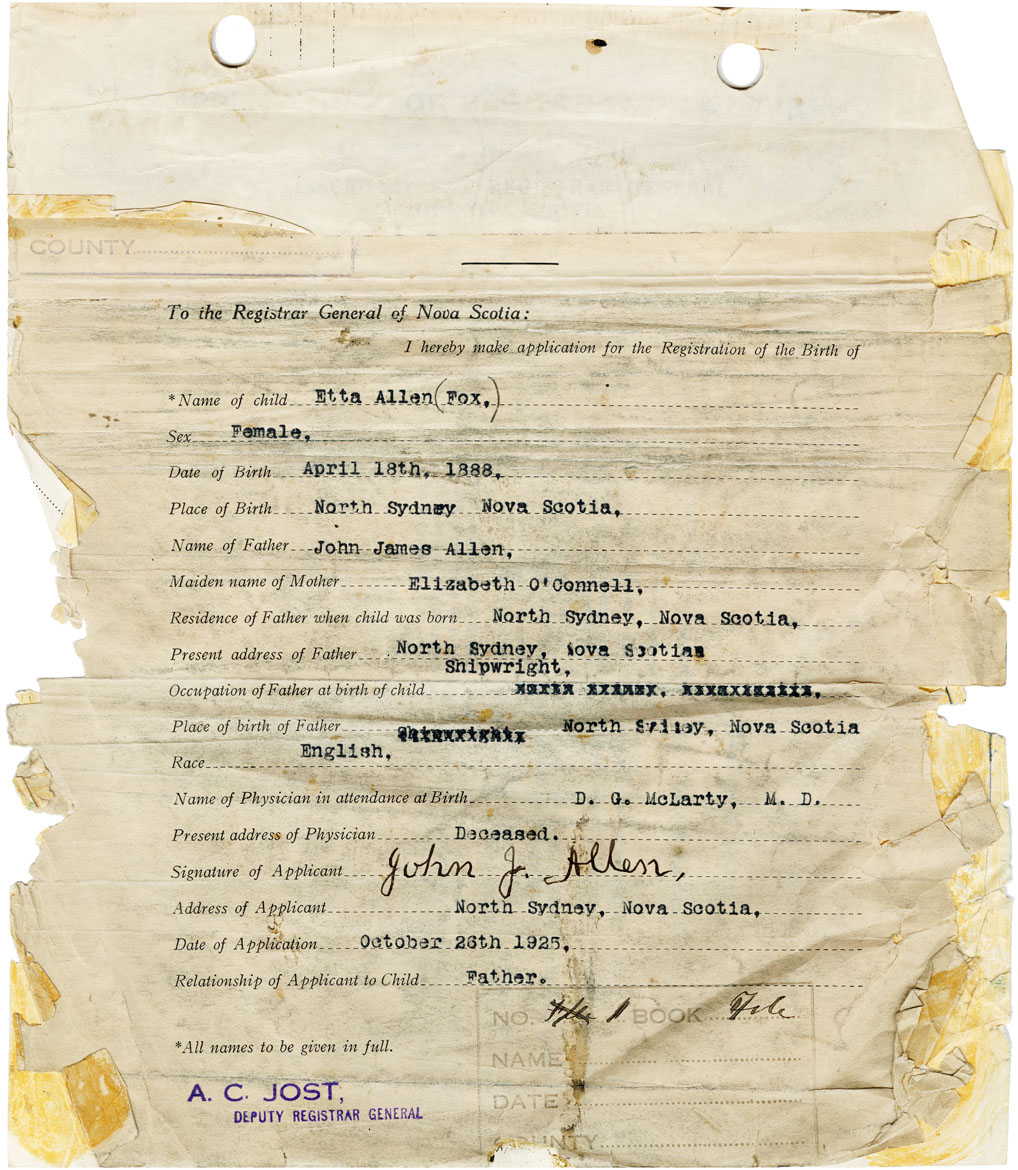 COUNTY
To the Registrar General of Nova Scotia:
I hereby make application for the Registration of the Birth of
*Name of child Etta Allen (Fox,)
Sex Female,
Date of Birth April 18th, 1888,
Place of Birth North Sydney Nova Scotia,
Name of Father John James Allen,
Maiden name of Mother Elizabeth O'Connell,
Residence of Father when child was born North Sydney, Nova Scotia,
Present address of Father North Sydney, Nova Scotia
Shipwright,
Occupation of Father at birth of child
Place of birth of Father North Sydney, Nova Scotia
Race English,
Name of Physician in attendance at Birth D. G. McLarty, M. D.
Present address of Physician Deceased.
Signature of Applicant John J. Allen,
Address of Applicant North Sydney, Nova Scotia,
Date of Application October 26th 1925,
Relationship of Applicant to Child Father.
NO. BOOK
*All names to be given in full.
NAME
A. C. JOST,
DATE
DEPUTY REGISTRAR GENERAL
COUNTY